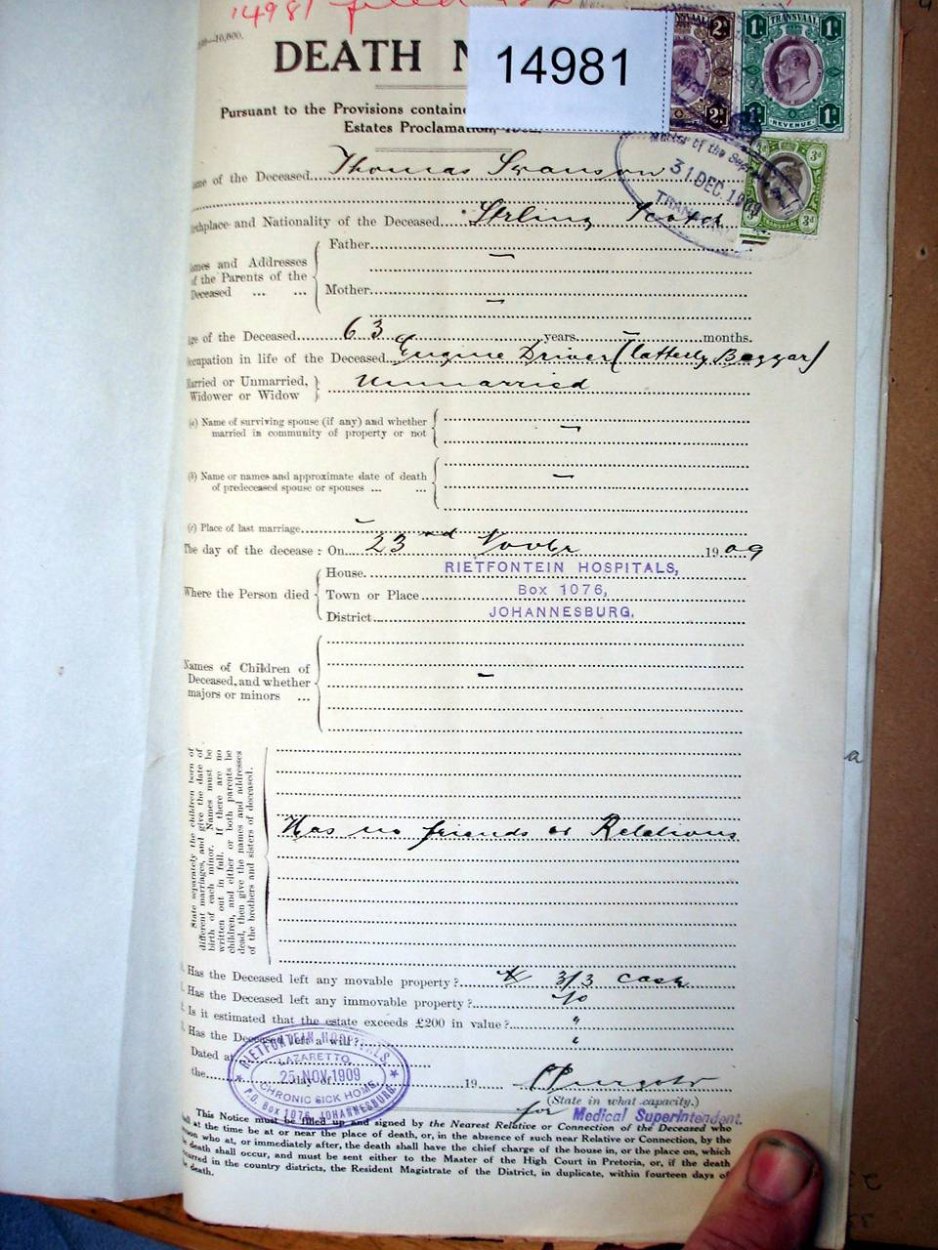 14981 filed
14981
TRANSVAAL
DEATH N
Pursuant to the Provisions containe
Estates Proclamation,
REVENUE
Master of the Sup
31 DEC. 1909
TRAN
me of the Deceased Thomas Swanson
rthplace and Nationality of the Deceased Stirling Scotch
Names and Addresses of the Parents of the Deceased ... ...
Father —
Mother —
ge of the Deceased 63 years — months.
ccupation in life of the Deceased Engine Driver (latterly Beggar)
Married or Unmarried, Widower or Widow } Unmarried
(a) Name of surviving spouse (if any) and whether
married in community of property or not —
(b) Name or names and approximate date of death
of predeceased spouse or spouses ... ... —
(c) Place of last marriage —
The day of the decease: On 23nd Novbr 1909
Where the Person died
House. RIETFONTEIN HOSPITALS,
Town or Place Box 1076,
District JOHANNESBURG.
Names of Children of
Deceased, and whether —
majors or minors ...
State separately the children born of
different marriages, and give the date of
birth of each minor. Names must be
written out in full. If there are no
children, and either or both parents be
dead, then give the names and addresses
of the brothers and sisters of deceased.
Has no friends or Relations
Has the Deceased left any movable property? 3/3 cash
Has the Deceased left any immovable property? No
Is it estimated that the estate exceeds £200 in value? "
Has the Deceased left a will? "
Dated at
the day of 19
RIETFONTEIN HOSPITALS
LAZARETTO
25 NOV 1909
CHRONIC SICK HOME
P.O. Box 1076, JOHANNESBURG
(State in what capacity.)
for Medical Superintendent.
This Notice must be filled up and signed by the Nearest Relative or Connection of the Deceased who
all at the time be at or near the place of death, or, in the absence of such near Relative or Connection, by the
son who at, or immediately after, the death shall have the chief charge of the house in, or the place on, which
death shall occur, and must be sent either to the Master of the High Court in Pretoria, or, if the death
urred in the country districts, the Resident Magistrate of the District, in duplicate, within fourteen days of
death.